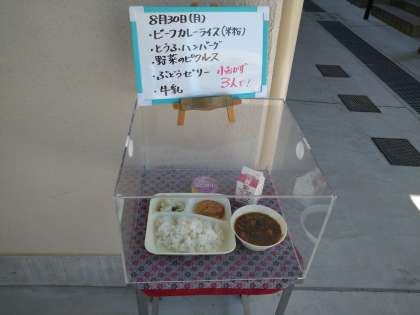 8月30日(月)
・ビーフカレーライス(米粉)
・とうふハンバーグ
・野菜のピクルス
・ぶどうゼリー 小おかず
・牛乳 3人で!